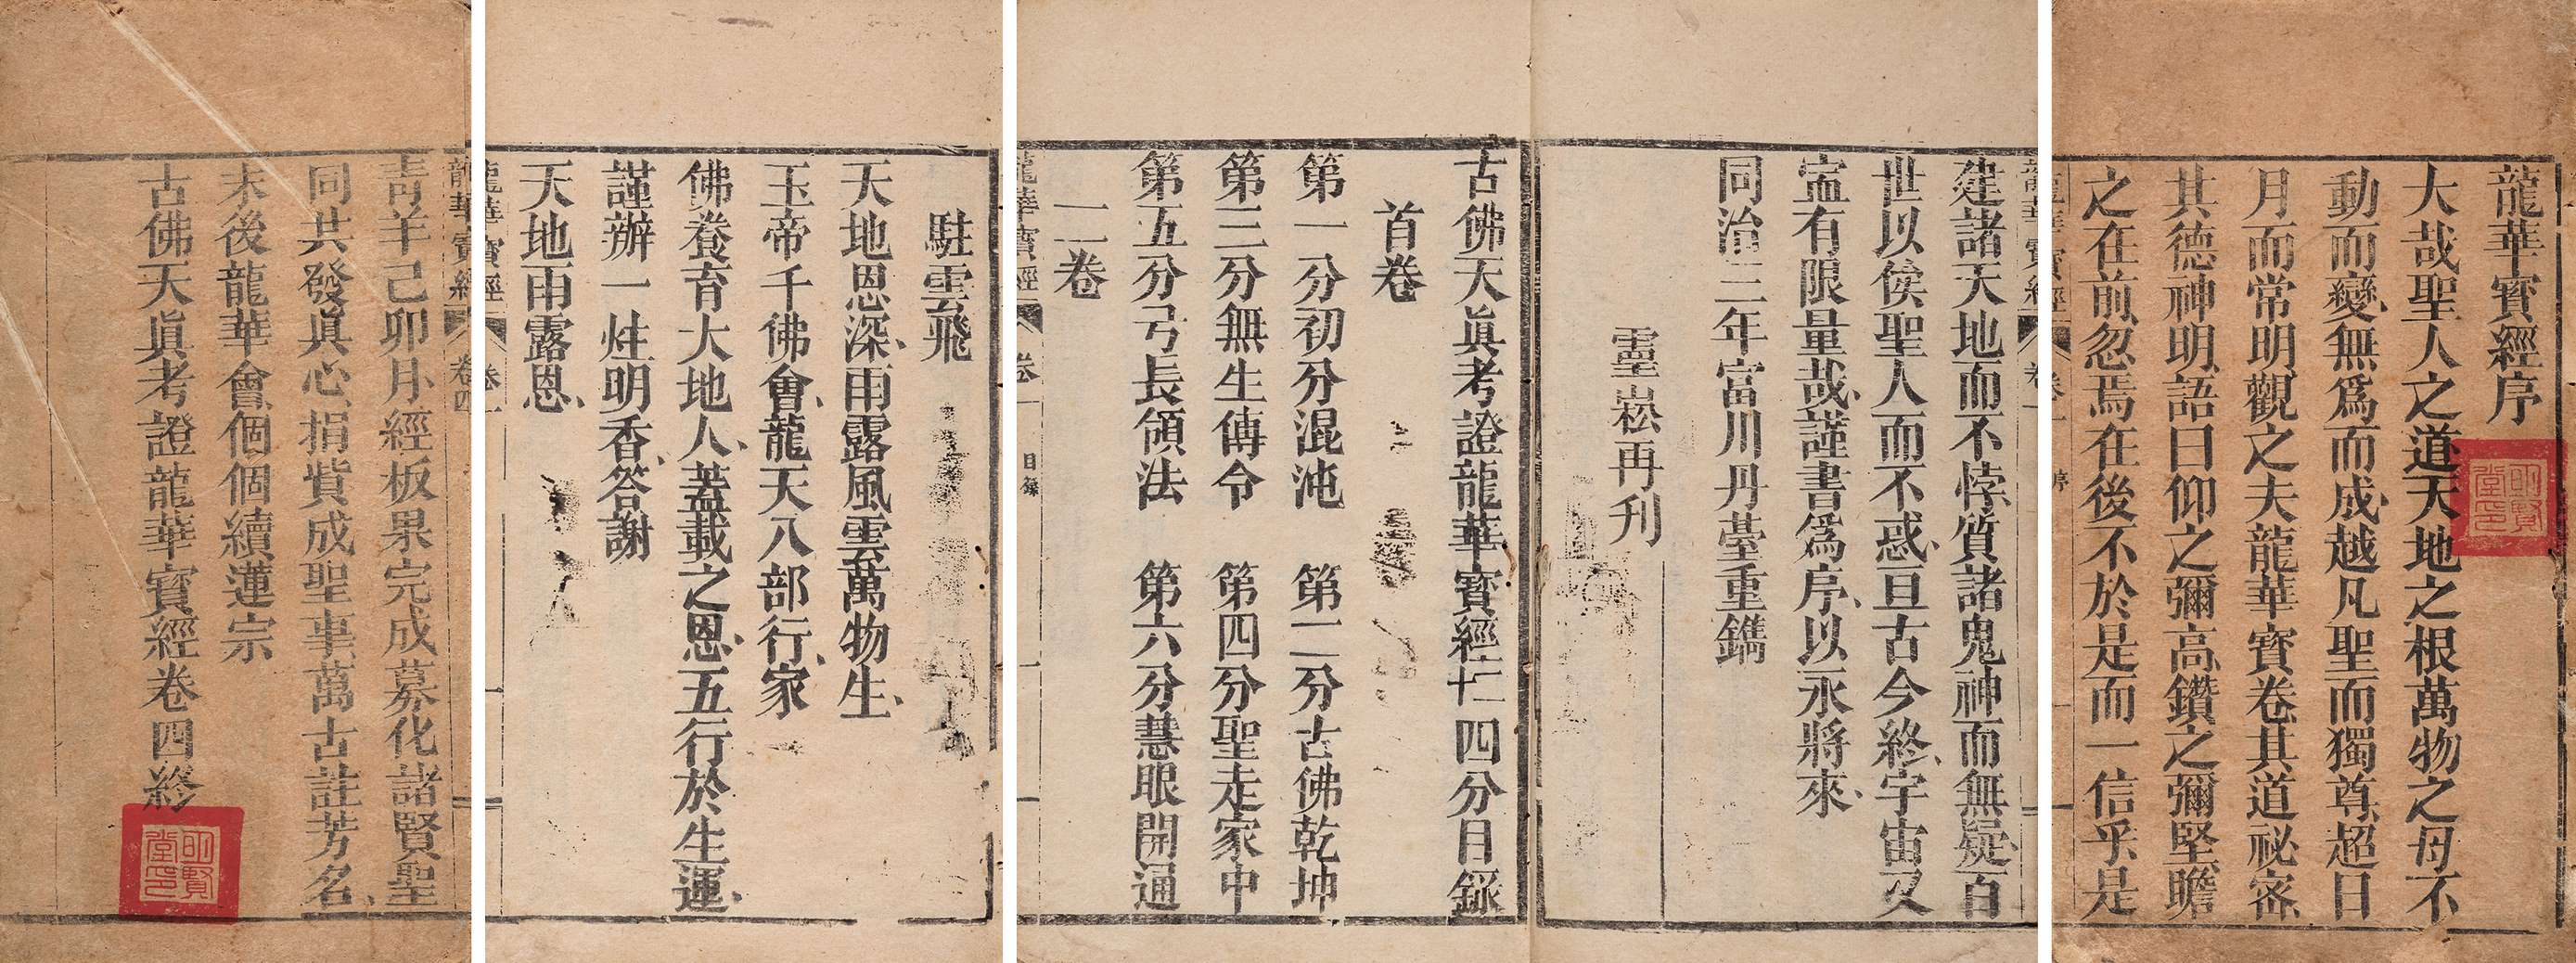 龍華寶經序
大哉聖人之道天地之根萬物之母不
動而變無爲而成越凡聖而獨尊超日
月而常明觀之夫龍華寶卷其道祕密
其德神明語曰仰之彌高鑽之彌堅瞻
之在前忽焉在後不於是而一信乎是
龍華寶經
建諸天地而不悖質諸鬼神而無疑百
世以俟聖人而不惑亘古今終宇宙又
寍有限量哉謹書爲序以永將來
同治三年富川丹臺重鐫
靈崧再刊
古佛天眞考證龍華寶經二十四分目錄
首卷
第一分初分混沌 第二分古佛乾坤
第三分無生傳令 第四分聖走家中
第五分弓長領法 第六分慧眼開通
二卷
龍華寶經 卷一 目錄
駐雲飛
天地恩深雨露風雲萬物生
玉帝千佛會龍天八部行家
佛養育大地人蓋載之恩五行於生運
謹辦一炷明香答謝
天地雨露恩
龍華寶經 卷一
龍華寶經 卷四
青羊己卯月經板果完成募化諸賢聖
同共發眞心捐貲成聖事萬古註芳名
末後龍華會個個續蓮宗
古佛天眞考證龍華寶經卷四終
明賢堂印